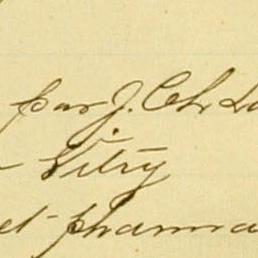 par J. Ch
Vitry
et pharma